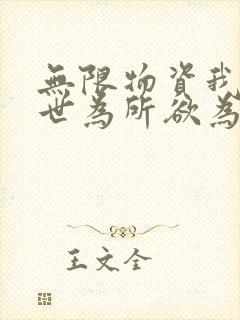 無限物資我
世為所欲為
王文全